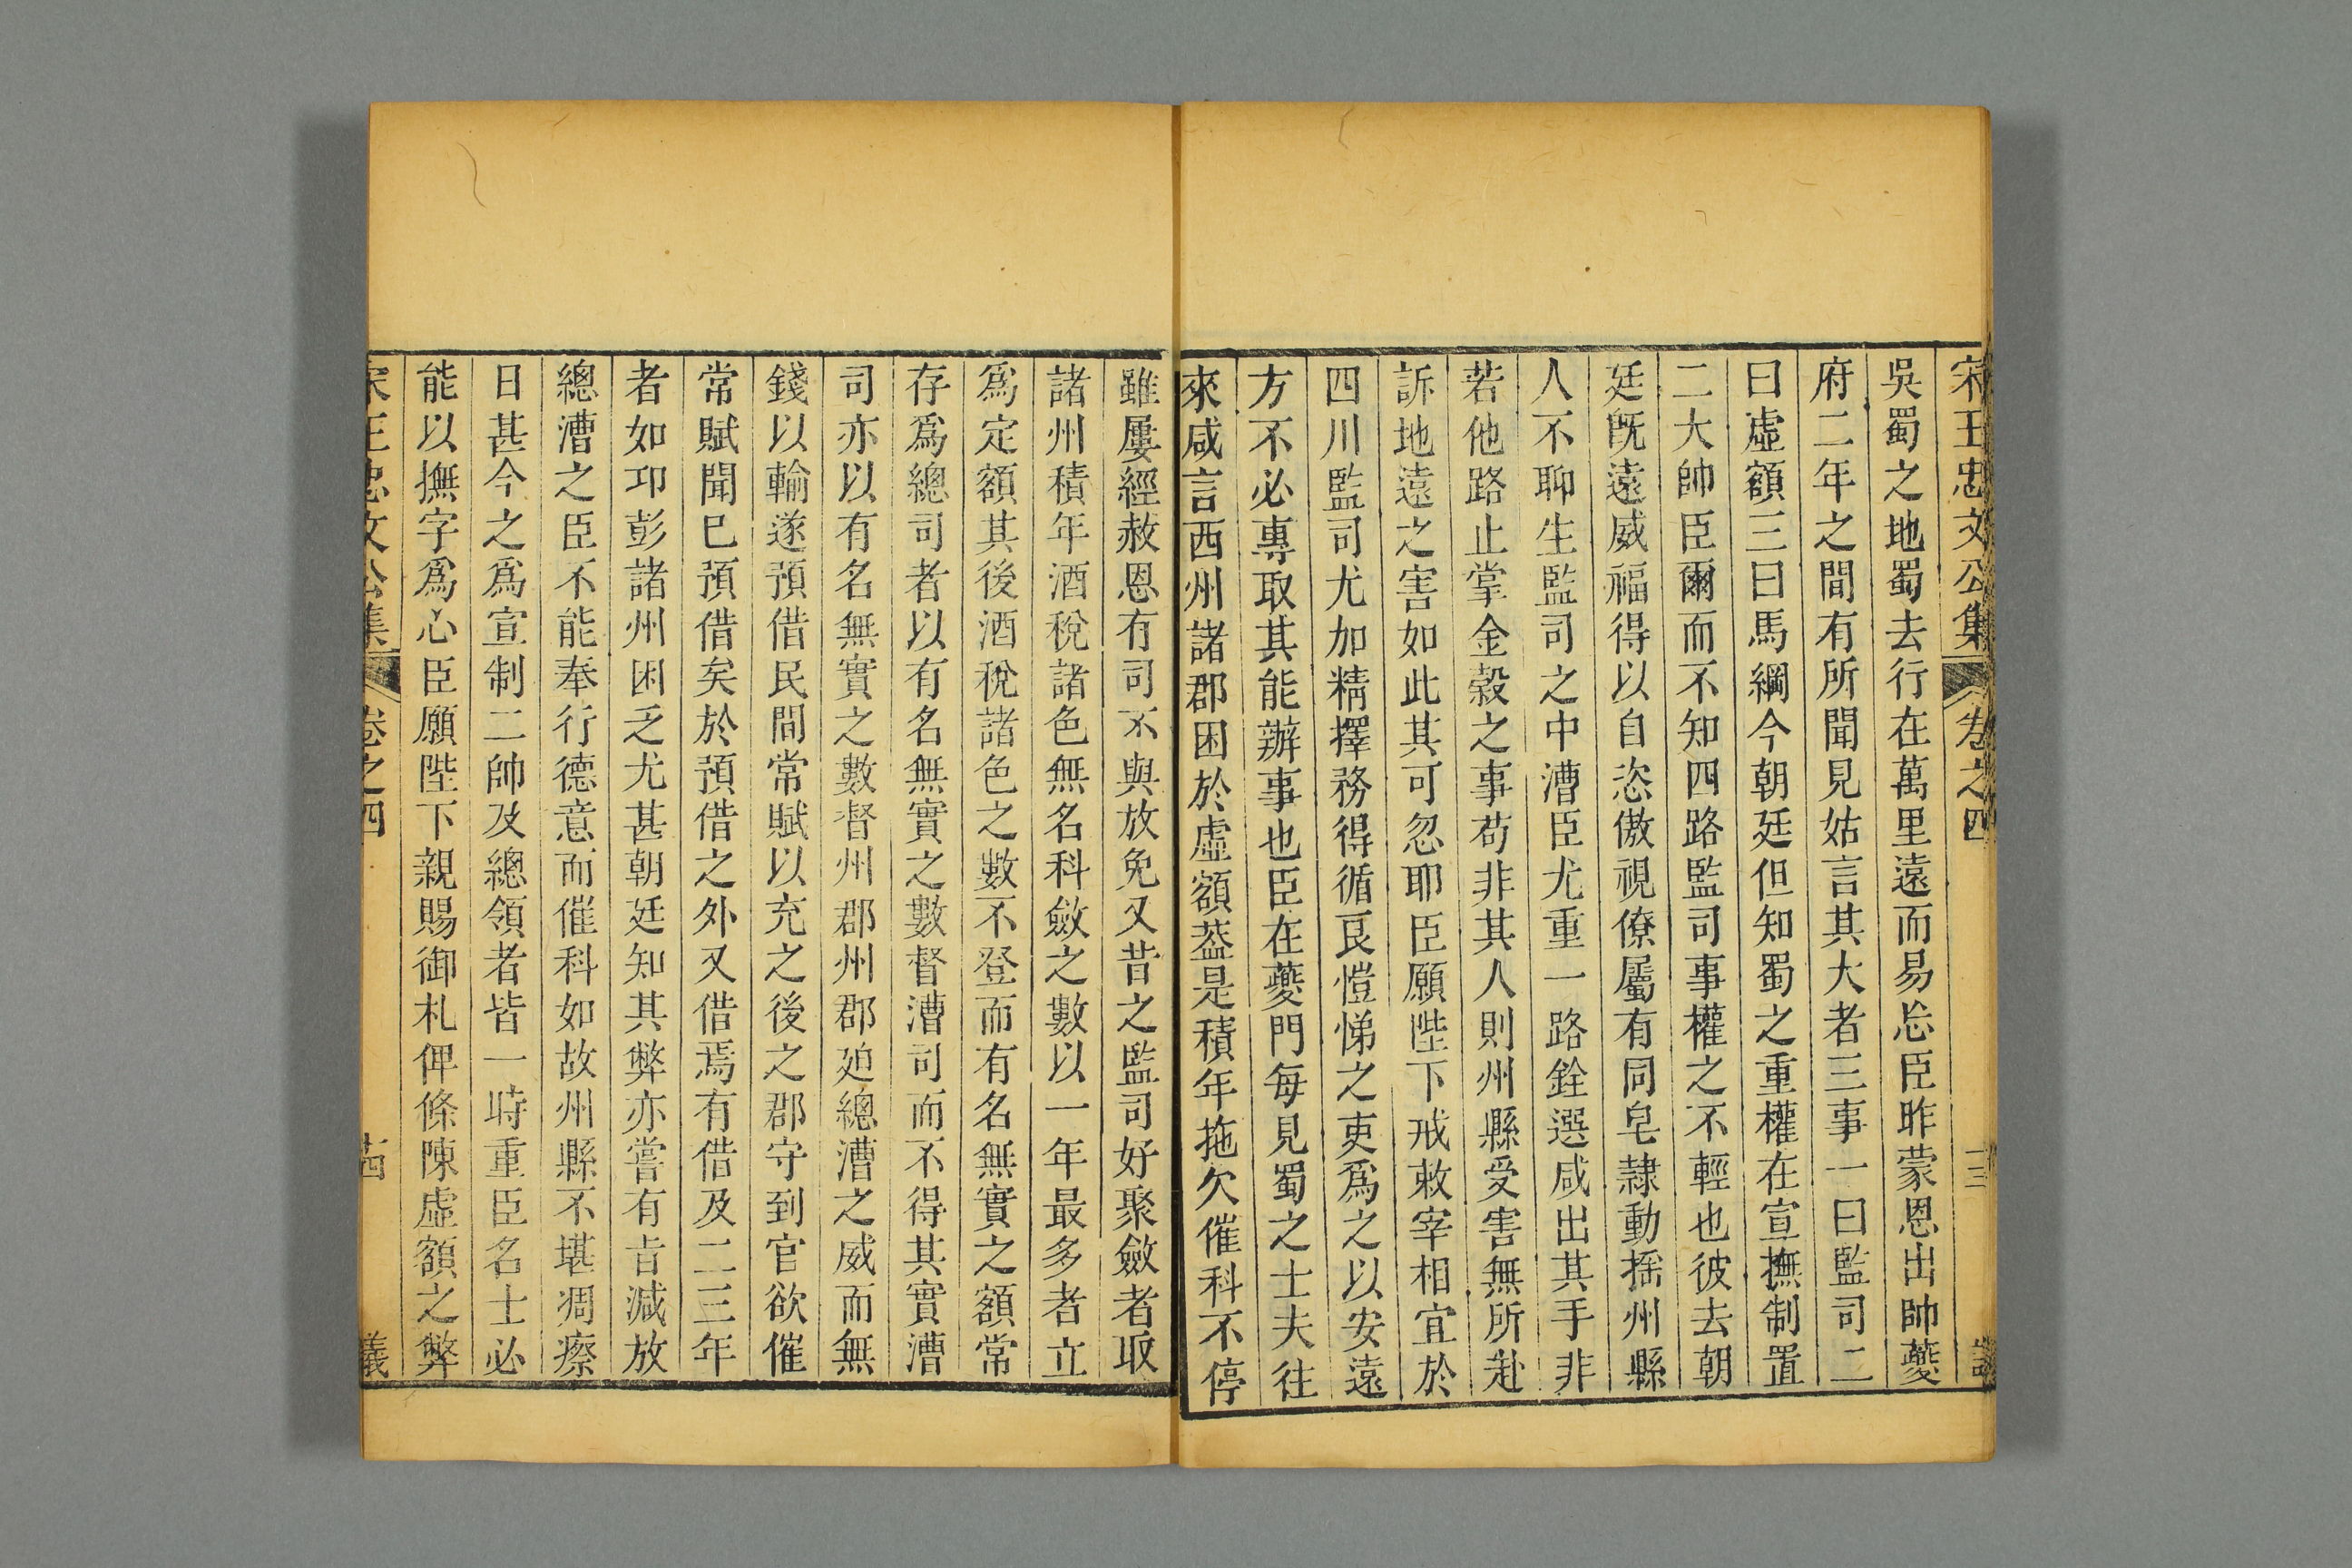 宋王忠文公集 卷之四 十三
吳蜀之地蜀去行在萬里遠而易忘臣昨蒙恩出帥夔
府二年之間有所聞見姑言其大者三事一曰監司二
曰虛額三曰馬綱今朝廷但知蜀之重權在宣撫制置
二大帥臣爾而不知四路監司事權之不輕也彼去朝
廷旣遠威福得以自恣傲視僚屬有同皂隷動搖州縣
人不聊生監司之中漕臣尤重一路銓選咸出其手非
若他路止掌金穀之事苟非其人則州縣受害無所赴
訴地遠之害如此其可忽耶臣願陛下戒敕宰相宜於
四川監司尤加精擇務得循良愷悌之吏爲之以安遠
方不必專取其能辦事也臣在夔門每見蜀之士夫往
來咸言西州諸郡困於虛額葢是積年拖欠催科不停
雖屢經赦恩有司不與放免又昔之監司好聚斂者取
諸州積年酒稅諸色無名科斂之數以一年最多者立
爲定額其後酒稅諸色之數不登而有名無實之額常
存爲總司者以有名無實之數督漕司而不得其實漕
司亦以有名無實之數督州郡州郡廹總漕之威而無
錢以輸遂預借民間常賦以充之後之郡守到官欲催
常賦聞已預借矣於預借之外又借焉有借及二三年
者如卭彭諸州困乏尤甚朝廷知其弊亦嘗有旨減放
總漕之臣不能奉行德意而催科如故州縣不堪凋瘵
日甚今之爲宣制二帥及總領者皆一時重臣名士必
能以撫字爲心臣願陛下親賜御札俾條陳虛額之弊
宋王忠文公集 卷之四